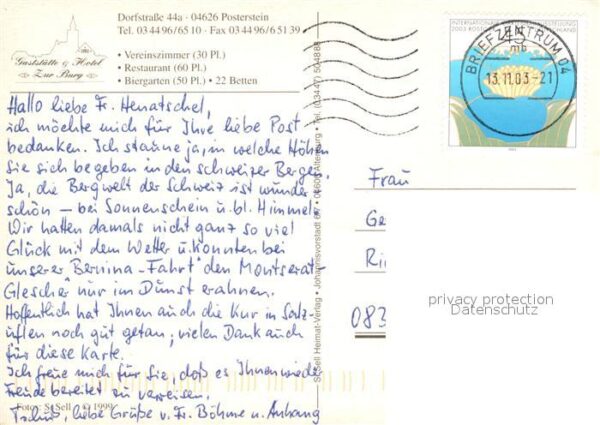 Dorfstraße 44a · 04626 Posterstein
Tel. 03 44 96/65 10 · Fax 03 44 96/6 51 39
Gaststätte & Hotel
Zur Burg
• Vereinszimmer (30 Pl.)
• Restaurant (60 Pl.)
• Biergarten (50 Pl.) • 22 Betten
Hallo liebe Fr. Henatschel,
ich möchte mich für Ihre liebe Post
bedanken. Ich staune ja, in welche Höhen
Sie sich begeben in den schweizer Bergen.
Ja, die Bergwelt der Schweiz ist wunder
schön – bei Sonnenschein u. bl. Himmel.
Wir hatten damals nicht ganz so viel
Glück mit dem Wetter u. konnten bei
unserer Bernina-Fahrt den Montserat-
Glescher nur im Dunst erahnen.
Hoffentlich hat Ihnen auch die Kur in Salz-
uflen noch gut getan, vielen Dank auch
für diese Karte.
Ich freue mich für Sie, daß es Ihnen wieder
Freude bereitet zu verreisen.
Tschüß, liebe Grüße v. Fr. Böhme u. Anhang
Fotos: St. Sell © 1999
St. Sell Heimat-Verlag • Johannisvorstadt 6/7 • 04600 Altenburg • Tel. (03447) 504888
INTERNATIONALE
2003 ROSTOCK
BRIEFZENTRUM 04
mb
13.11.03-21
Frau
Ge
Ri
083
privacy protection
Datenschutz